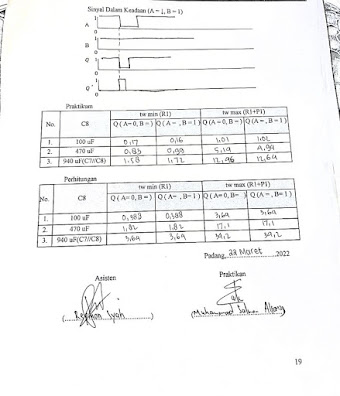 Sinyal Dalam Keadaan (A = 1, B = 1)
1
A
0
B
Q
Q'
Praktikum
No. C8 tw min (R1) tw max (R1+P1)
Q (A= 0, B = ) Q (A= , B= 1) Q (A= 0, B= ) Q (A= , B= 1)
1. 100 uF 0,17 0,16 1,01 1,02
2. 470 uF 0,83 0,99 5,19 4,99
3. 940 uF(C7//C8) 1,58 1,72 12,96 12,64
Perhitungan
No. C8 tw min (R1) tw max (R1+P1)
Q (A= 0, B= ) Q (A= , B= 1) Q (A= 0, B= ) Q (A= , B= 1)
1. 100 uF 0,388 0,388 3,64 3,64
2. 470 uF 1,82 1,82 17,1 17,1
3. 940 uF(C7//C8) 3,64 3,64 34,2 34,2
Padang, 22 Maret 2022
Asisten Praktikan
Muhammad
19